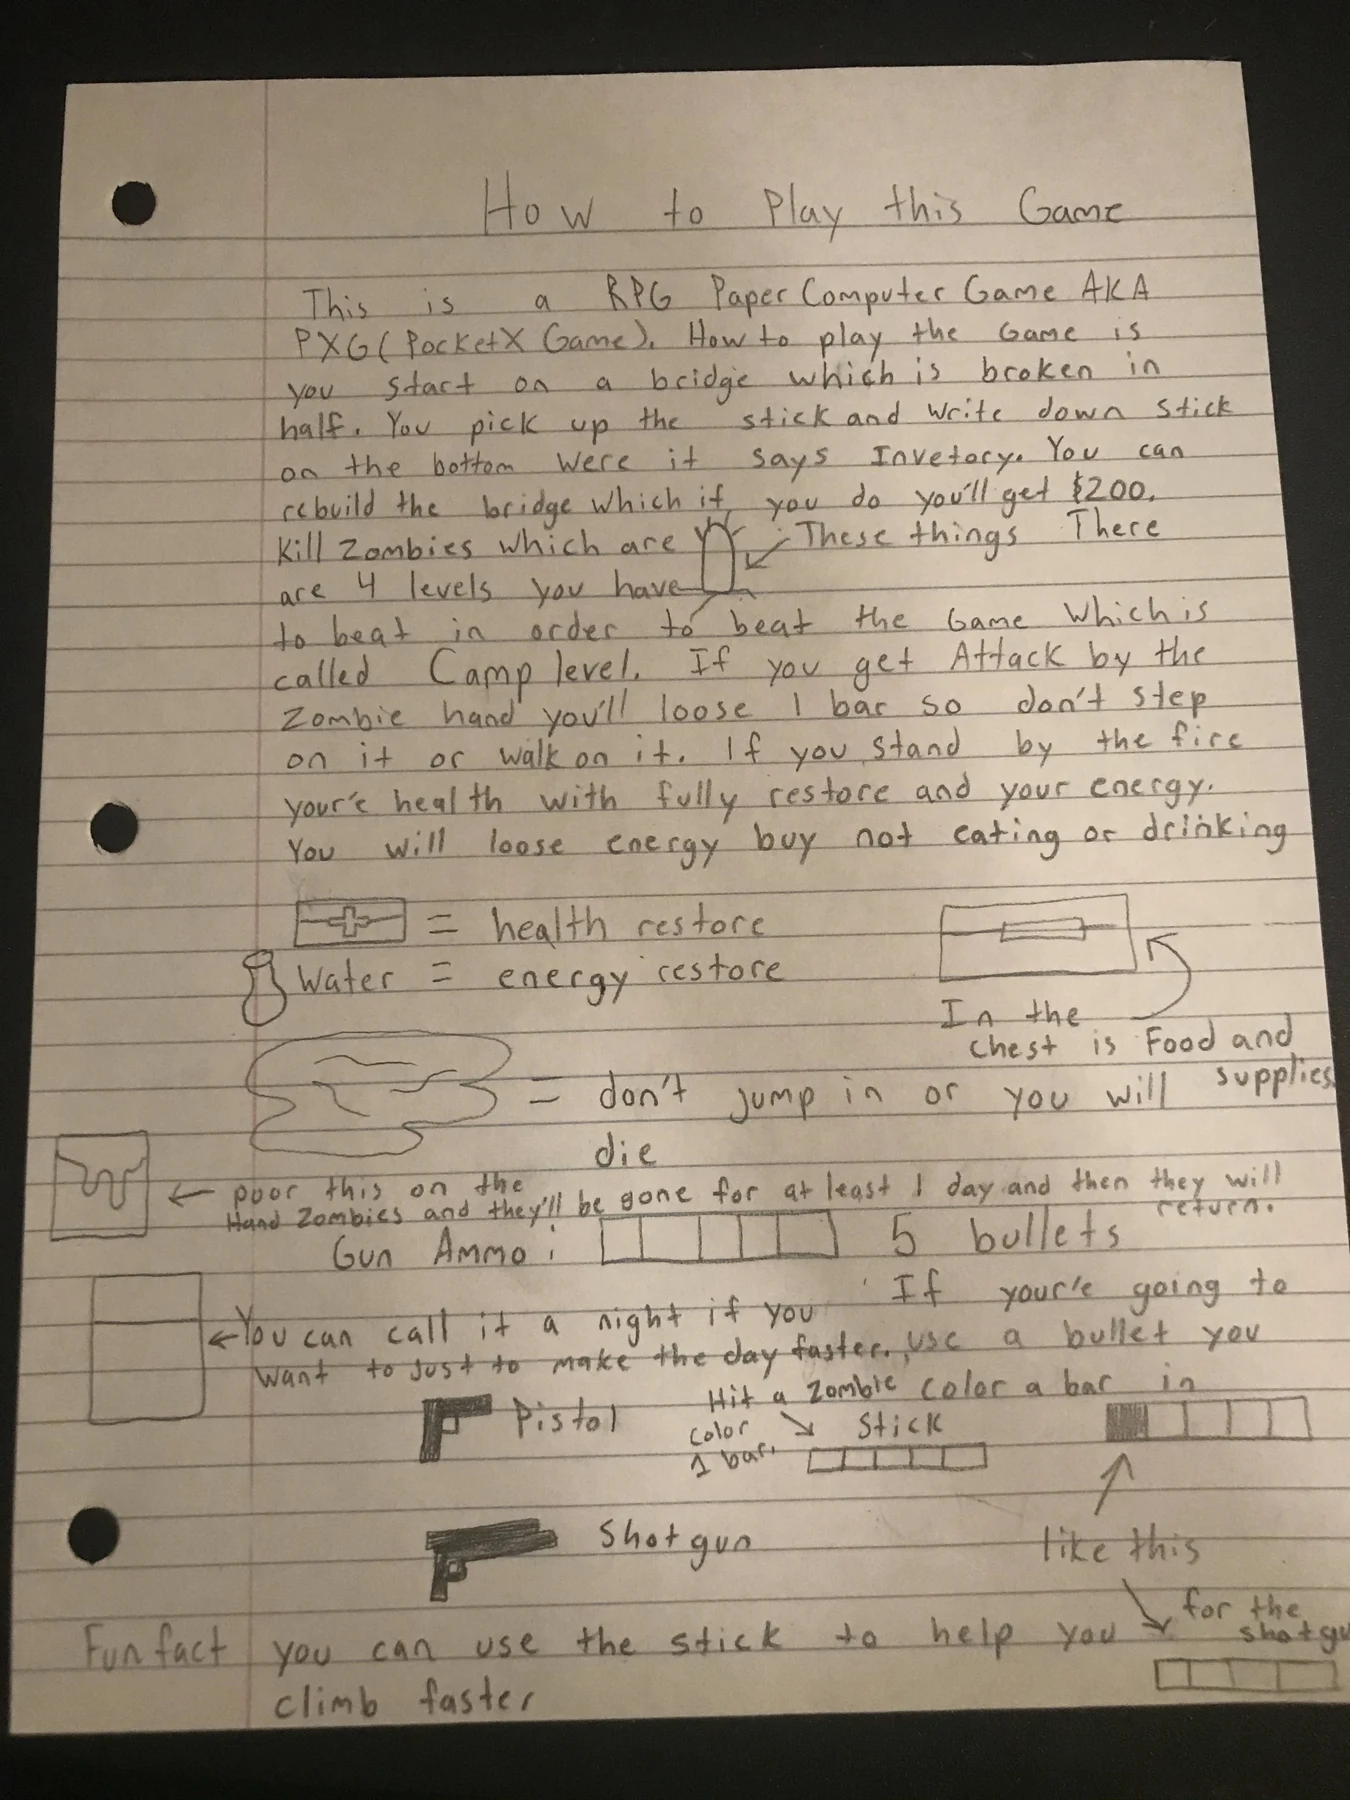 How to Play this Game
This is a RPG Paper Computer Game AKA
PXG (PocketX Game). How to play the Game is
you start on a bridge which is broken in
half. You pick up the stick and write down stick
on the bottom were it says Invetory. You can
rebuild the bridge which if you do you'll get $200.
Kill Zombies which are These things There
are 4 levels you have
to beat in order to beat the Game which is
called Camp level. If you get Attack by the
Zombie hand you'll loose 1 bar so don't step
on it or walk on it. If you stand by the fire
your'e health with fully restore and your energy.
You will loose energy buy not eating or drinking
= health restore
Water = energy restore
In the
chest is Food and
supplies
= don't jump in or you will
die
poor this on the
Hand Zombies and they'll be gone for at least 1 day and then they will
return.
Gun Ammo: 5 bullets
You can call it a night if you
want to just to make the day faster.
If your'e going to
use a bullet you
color a bar in
Pistol
Hit a Zombie
color
1 bar.
Stick
Shotgun
like this
for the
shotgu
Fun fact you can use the stick to help you
climb faster